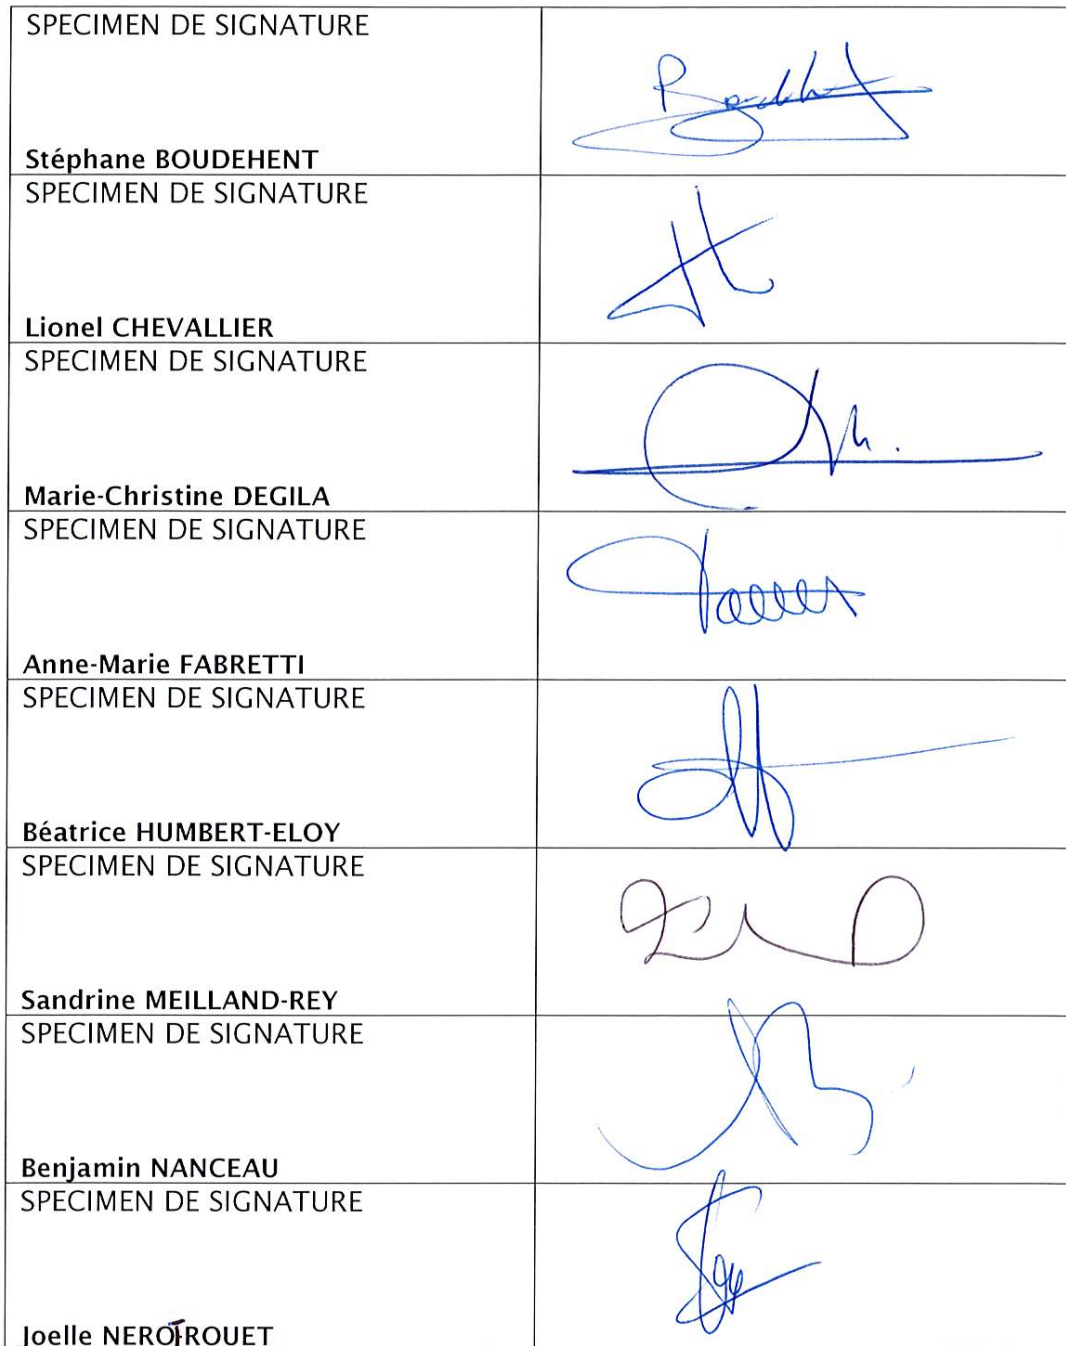 SPECIMEN DE SIGNATURE
Stéphane BOUDEHENT
SPECIMEN DE SIGNATURE
Lionel CHEVALLIER
SPECIMEN DE SIGNATURE
Marie-Christine DEGILA
SPECIMEN DE SIGNATURE
Anne-Marie FABRETTI
SPECIMEN DE SIGNATURE
Béatrice HUMBERT-ELOY
SPECIMEN DE SIGNATURE
Sandrine MEILLAND-REY
SPECIMEN DE SIGNATURE
Benjamin NANCEAU
SPECIMEN DE SIGNATURE
Joelle